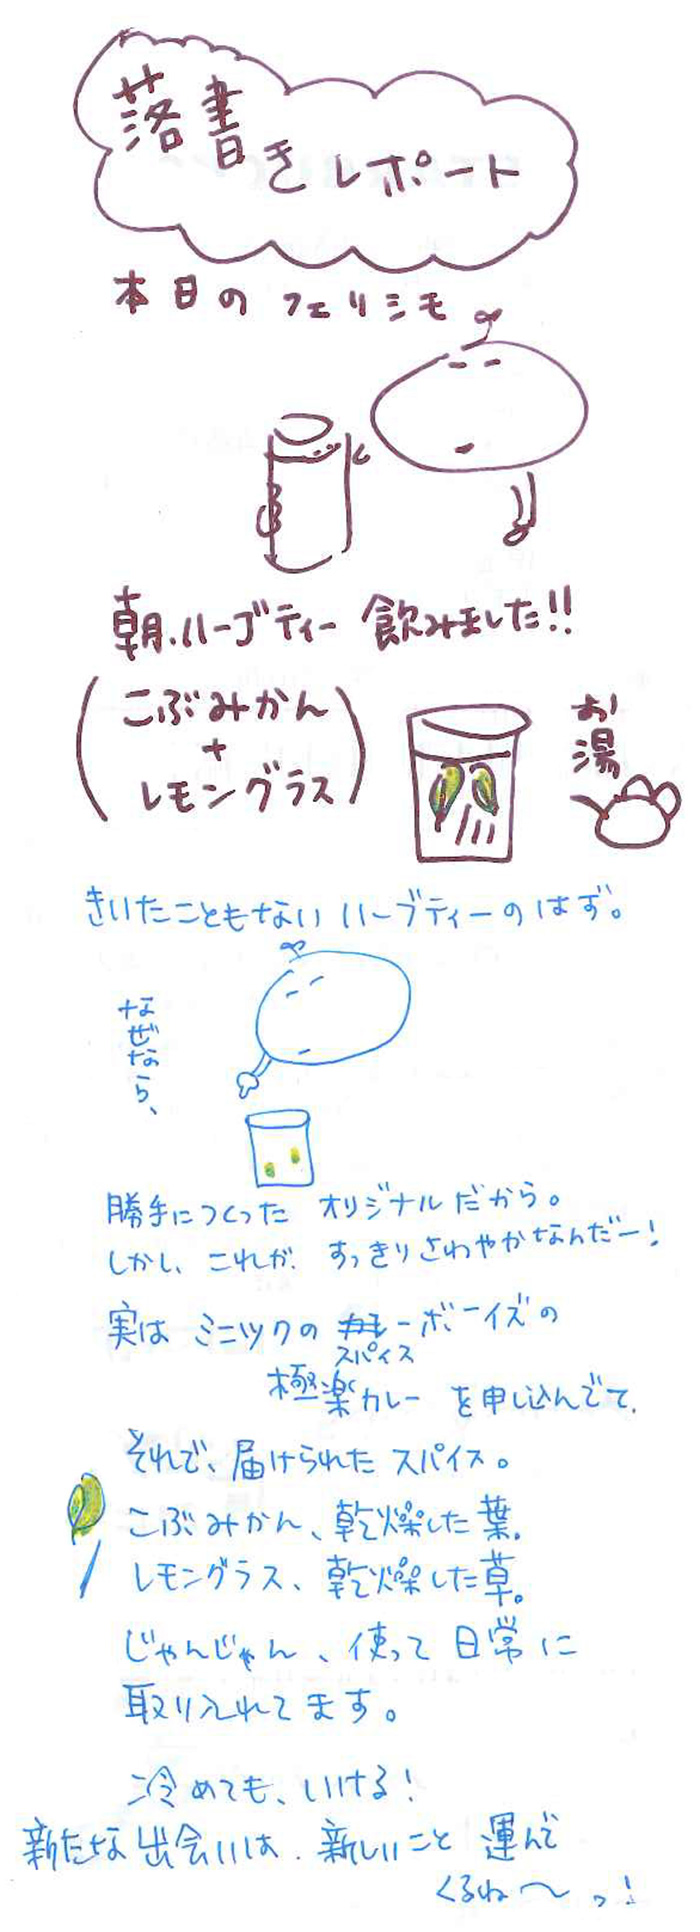 落書きレポート
本日のフェリシモ
朝、ハーブティー 飲みました!!
(こぶみかん
+
レモングラス)
お湯
きいたこともない ハーブティーのはず。
なぜなら、
勝手につくった オリジナルだから。
しかし、これが、すっきりさわやかなんだー!
実は ミニツクの ボーイズの
スパイス
極楽カレー を申し込んでて、
それで、届けられた スパイス。
こぶみかん、乾燥した葉。
レモングラス、乾燥した草。
じゃんじゃん、使って 日常に
取り入れてます。
冷めても、いける!
新たな出会いは、新しいこと 運んで
くるね〜っ!